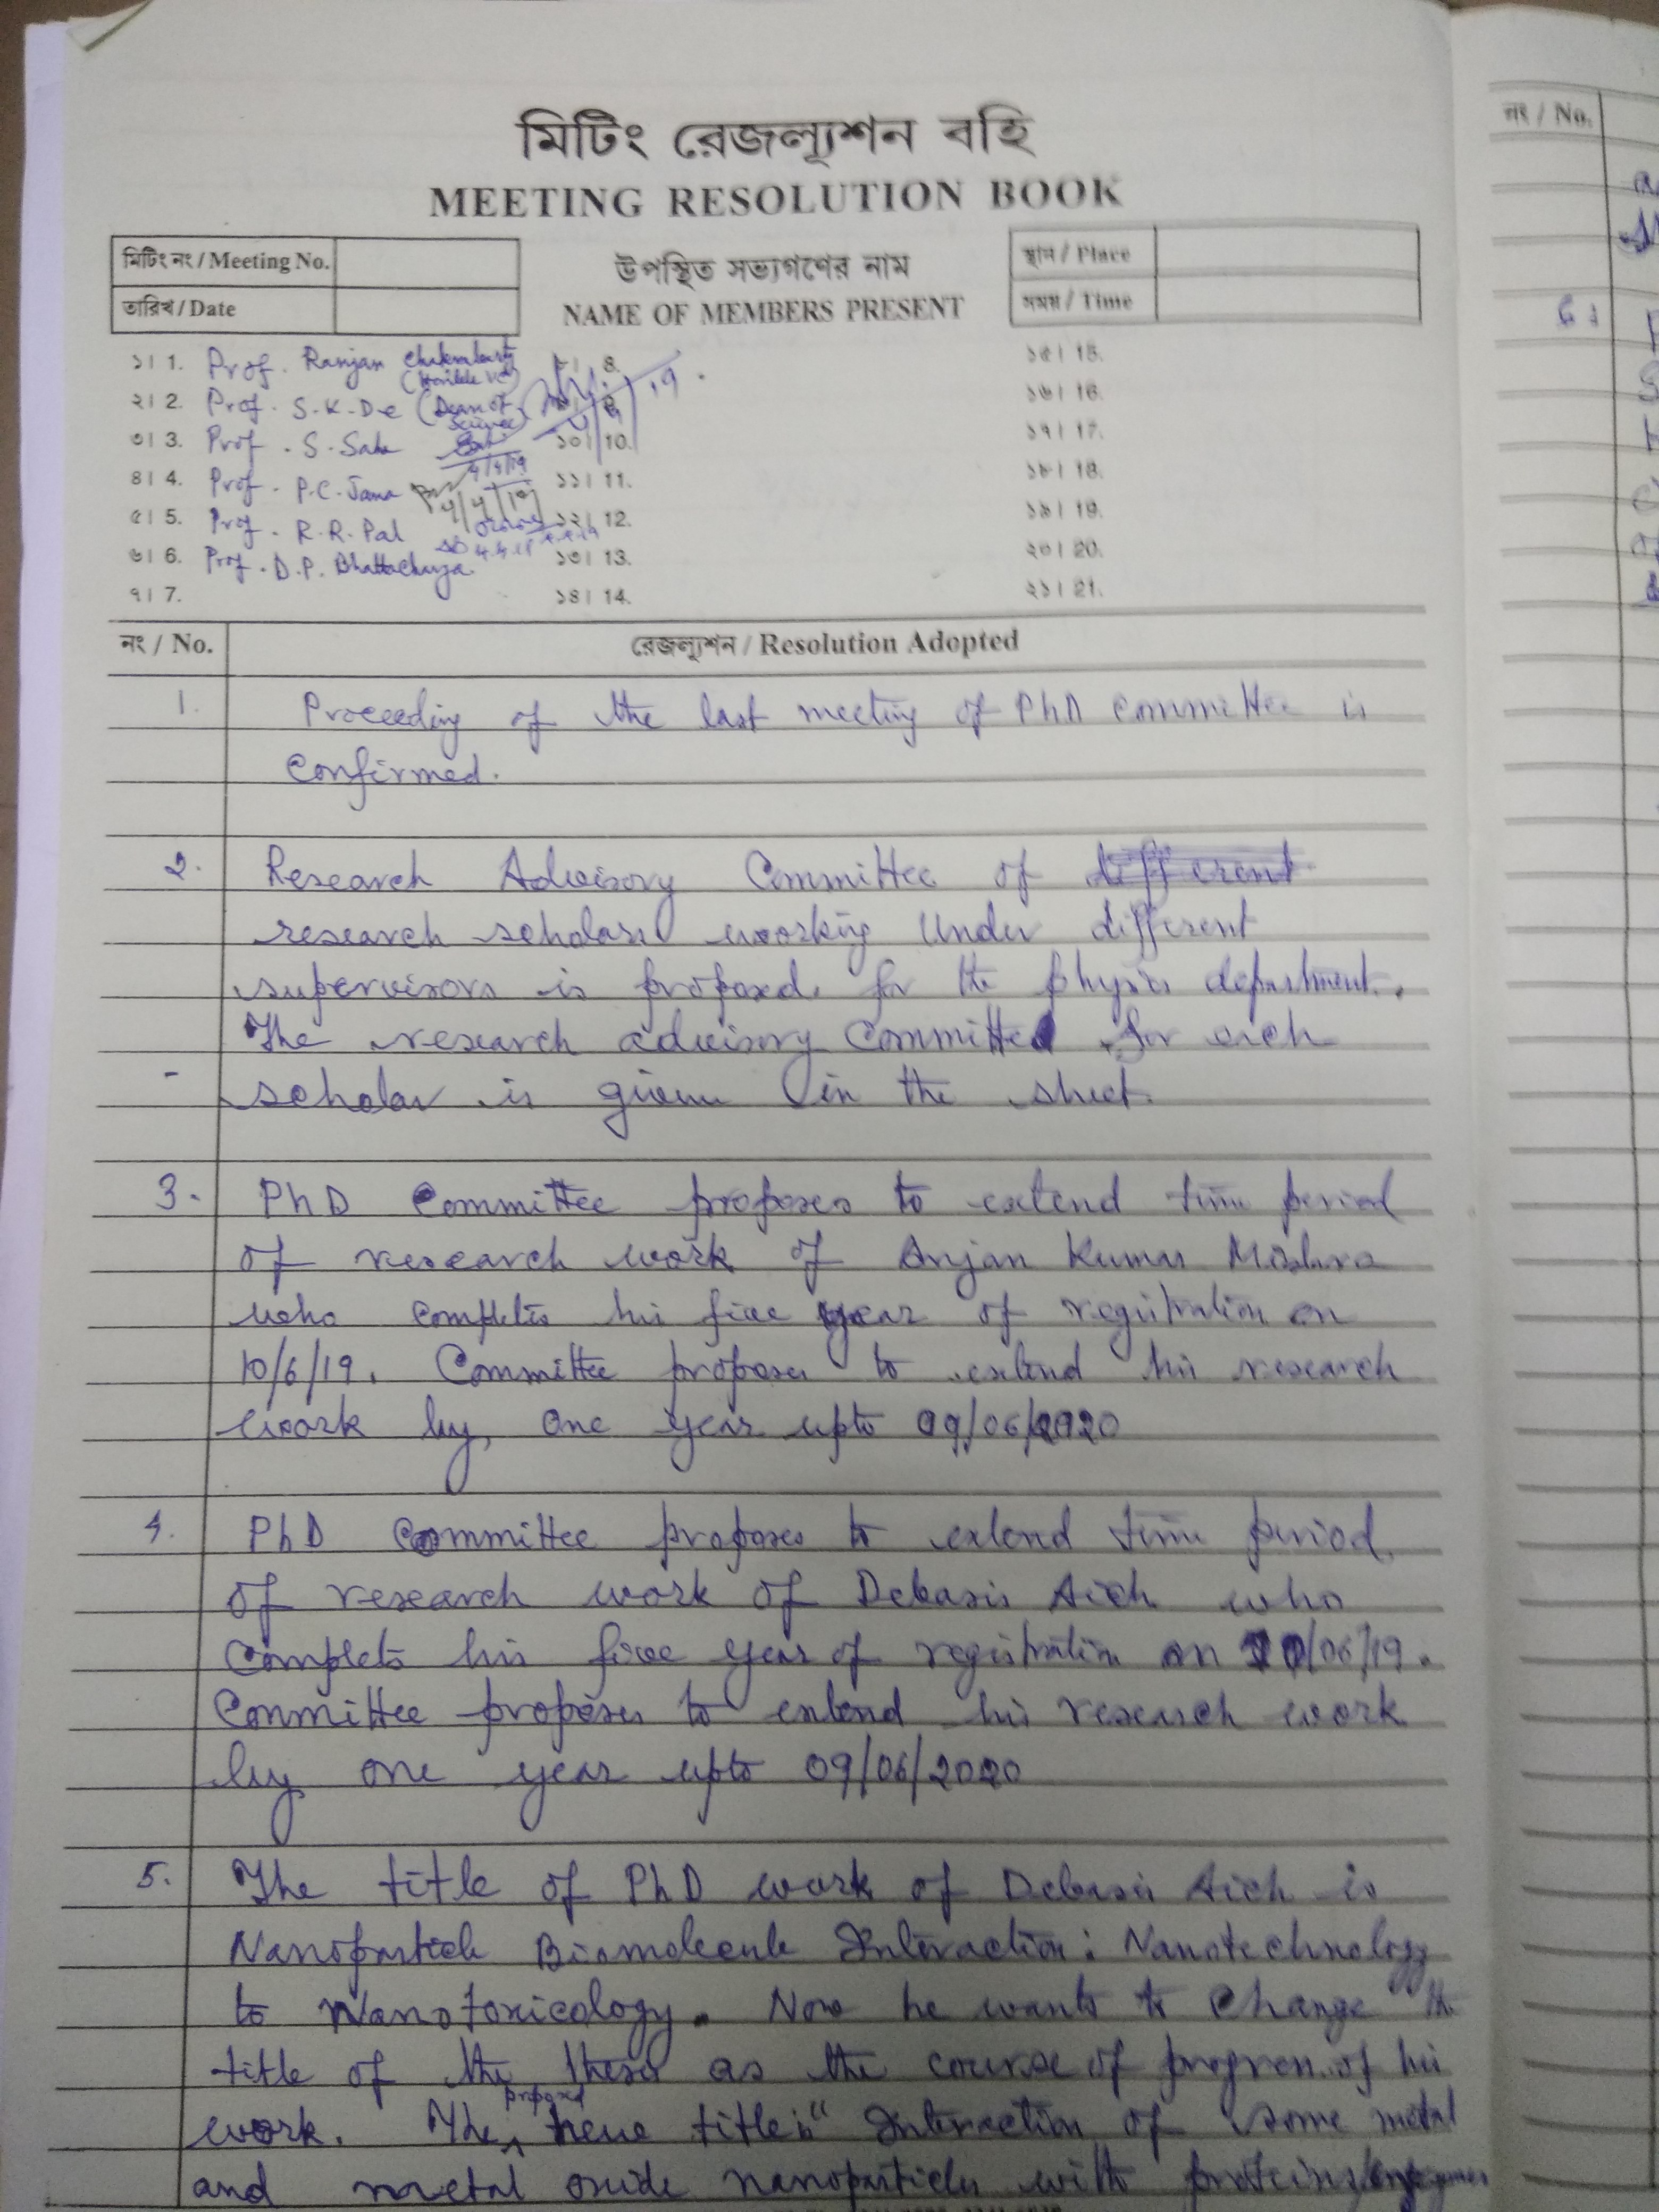 মিটিং রেজল্যুশন বহি
MEETING RESOLUTION BOOK
মিটিং নং / Meeting No.
তারিখ / Date
উপস্থিত সভ্যগণের নাম
NAME OF MEMBERS PRESENT
স্থান / Place
সময় / Time
১। 1. Prof. Ranjan Chakrabarti
(Hon'ble VC)
২। 2. Prof. S.K. De (Dean of Science)
৩। 3. Prof. S. Saha
4/4/19
৪। 4. Prof. P.C. Jana
4/4/19
৫। 5. Prof. R.R. Pal
৬। 6. Prof. D.P. Bhattacharya
৭। 7.
৮। 8.
৯। 9.
১০। 10.
১১। 11.
১২। 12.
১৩। 13.
১৪। 14.
১৫। 15.
১৬। 16.
১৭। 17.
১৮। 18.
১৯। 19.
২০। 20.
২১। 21.
নং / No. রেজল্যুশন / Resolution Adopted
1. Proceeding of the last meeting of PhD Committee is
confirmed.
2. Research Advisory Committee of different
research scholars working under different
supervisors is proposed for the physics department.
The research advisory Committee for each
scholar is given in the sheet.
3. PhD Committee proposes to extend time period
of research work of Anjan Kumar Mishra
who completes his five year of registration on
10/6/19. Committee proposes to extend his research
work by one year upto 09/06/2020
4. PhD Committee proposes to extend time period
of research work of Debasis Aich who
completes his five year of registration on 10/06/19.
Committee proposes to extend his research work
by one year upto 09/06/2020
5. The title of PhD work of Debasis Aich is
Nanoparticle Biomolecule Interaction: Nanotechnology
to Nanotoxicology. Now he wants to change the
title of the thesis as the course of progress of his
work. The proposed new title is "Interaction of some metal
and metal oxide nanoparticles with proteins/enzymes
নং / No.
6.